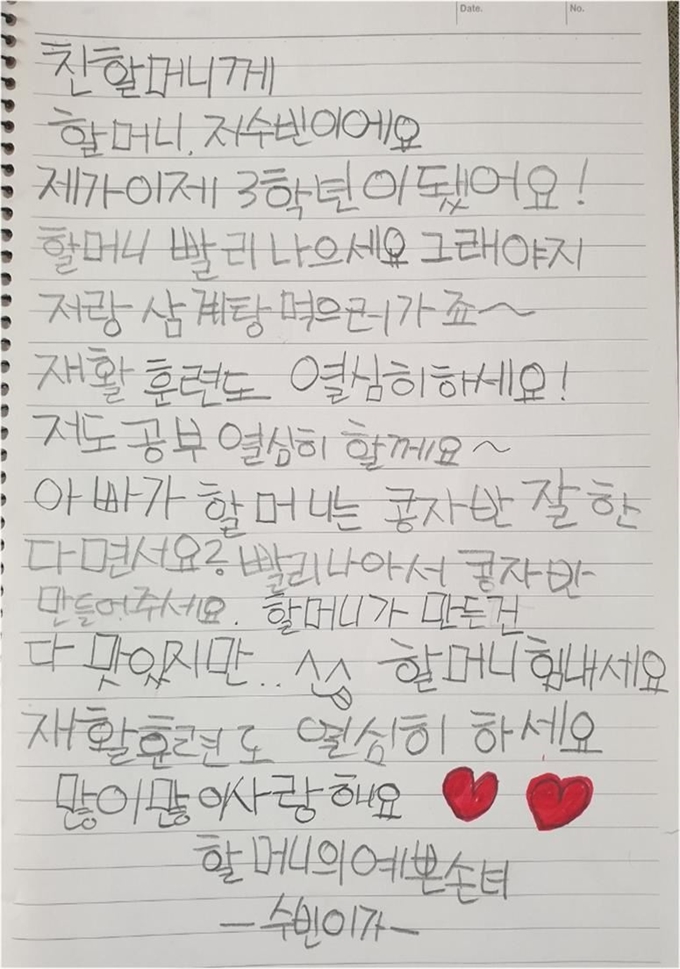 Date.
No.
찬할머니께
할머니, 저수빈이에요
제가이제 3학년이됐어요!
할머니 빨리나으세요 그래야지
저랑 삼계탕 먹으러가죠~
재활 훈련도 열심히하세요!
저도 공부 열심히 할께요~
아빠가 할머니는 콩자반 잘한
다면서요? 빨리나아서 콩자반
만들어주세요. 할머니가 만든건
다 맛있지만.. ^^ 할머니힘내세요
재활훈련도 열심히 하세요
많이많이사랑해요
할머니의예쁜손녀
-수빈이가-